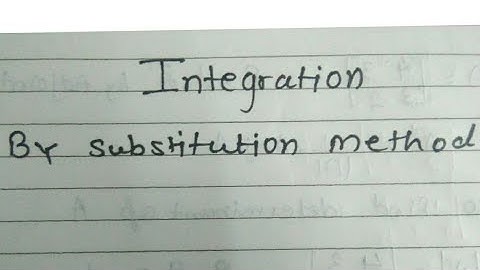 Integration
By substitution method